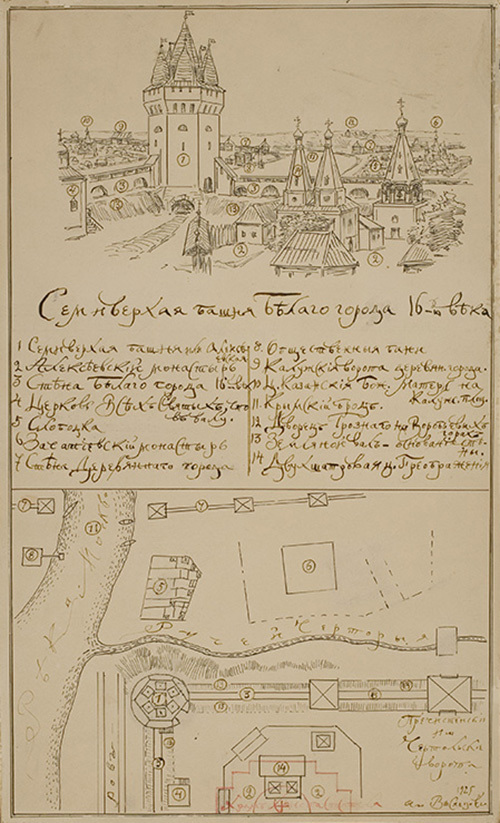 Семиверхая башня Бѣлаго города 16-го вѣка
1 Семиверхая башня въ Алексѣевская
2 Алексѣевскій монастырь
3 Стѣна бѣлаго города 16-го вѣка
4 Церковь Всѣхъ Святыхъ, что въ валу.
5 Слободка
6 Зачатіевскій монастырь
7 Стѣна Деревяннаго города
8 Общественныя бани
9 Калужскія ворота деревян. города.
10 Ц. Казанскія Бож. Матери на Калуж. площ.
11 Крымскій бродъ.
12 Дворецъ Грознаго на Воробьевыхъ горахъ
13 Землянои валъ - основаніе стѣны.
14 Двухшатровая ц. Преображенія
Рѣка Москва
Ручей Чарторыя
ровъ
Пречистенскія
или
Чертольскія
ворота
1925
Ап. Васнецовъ